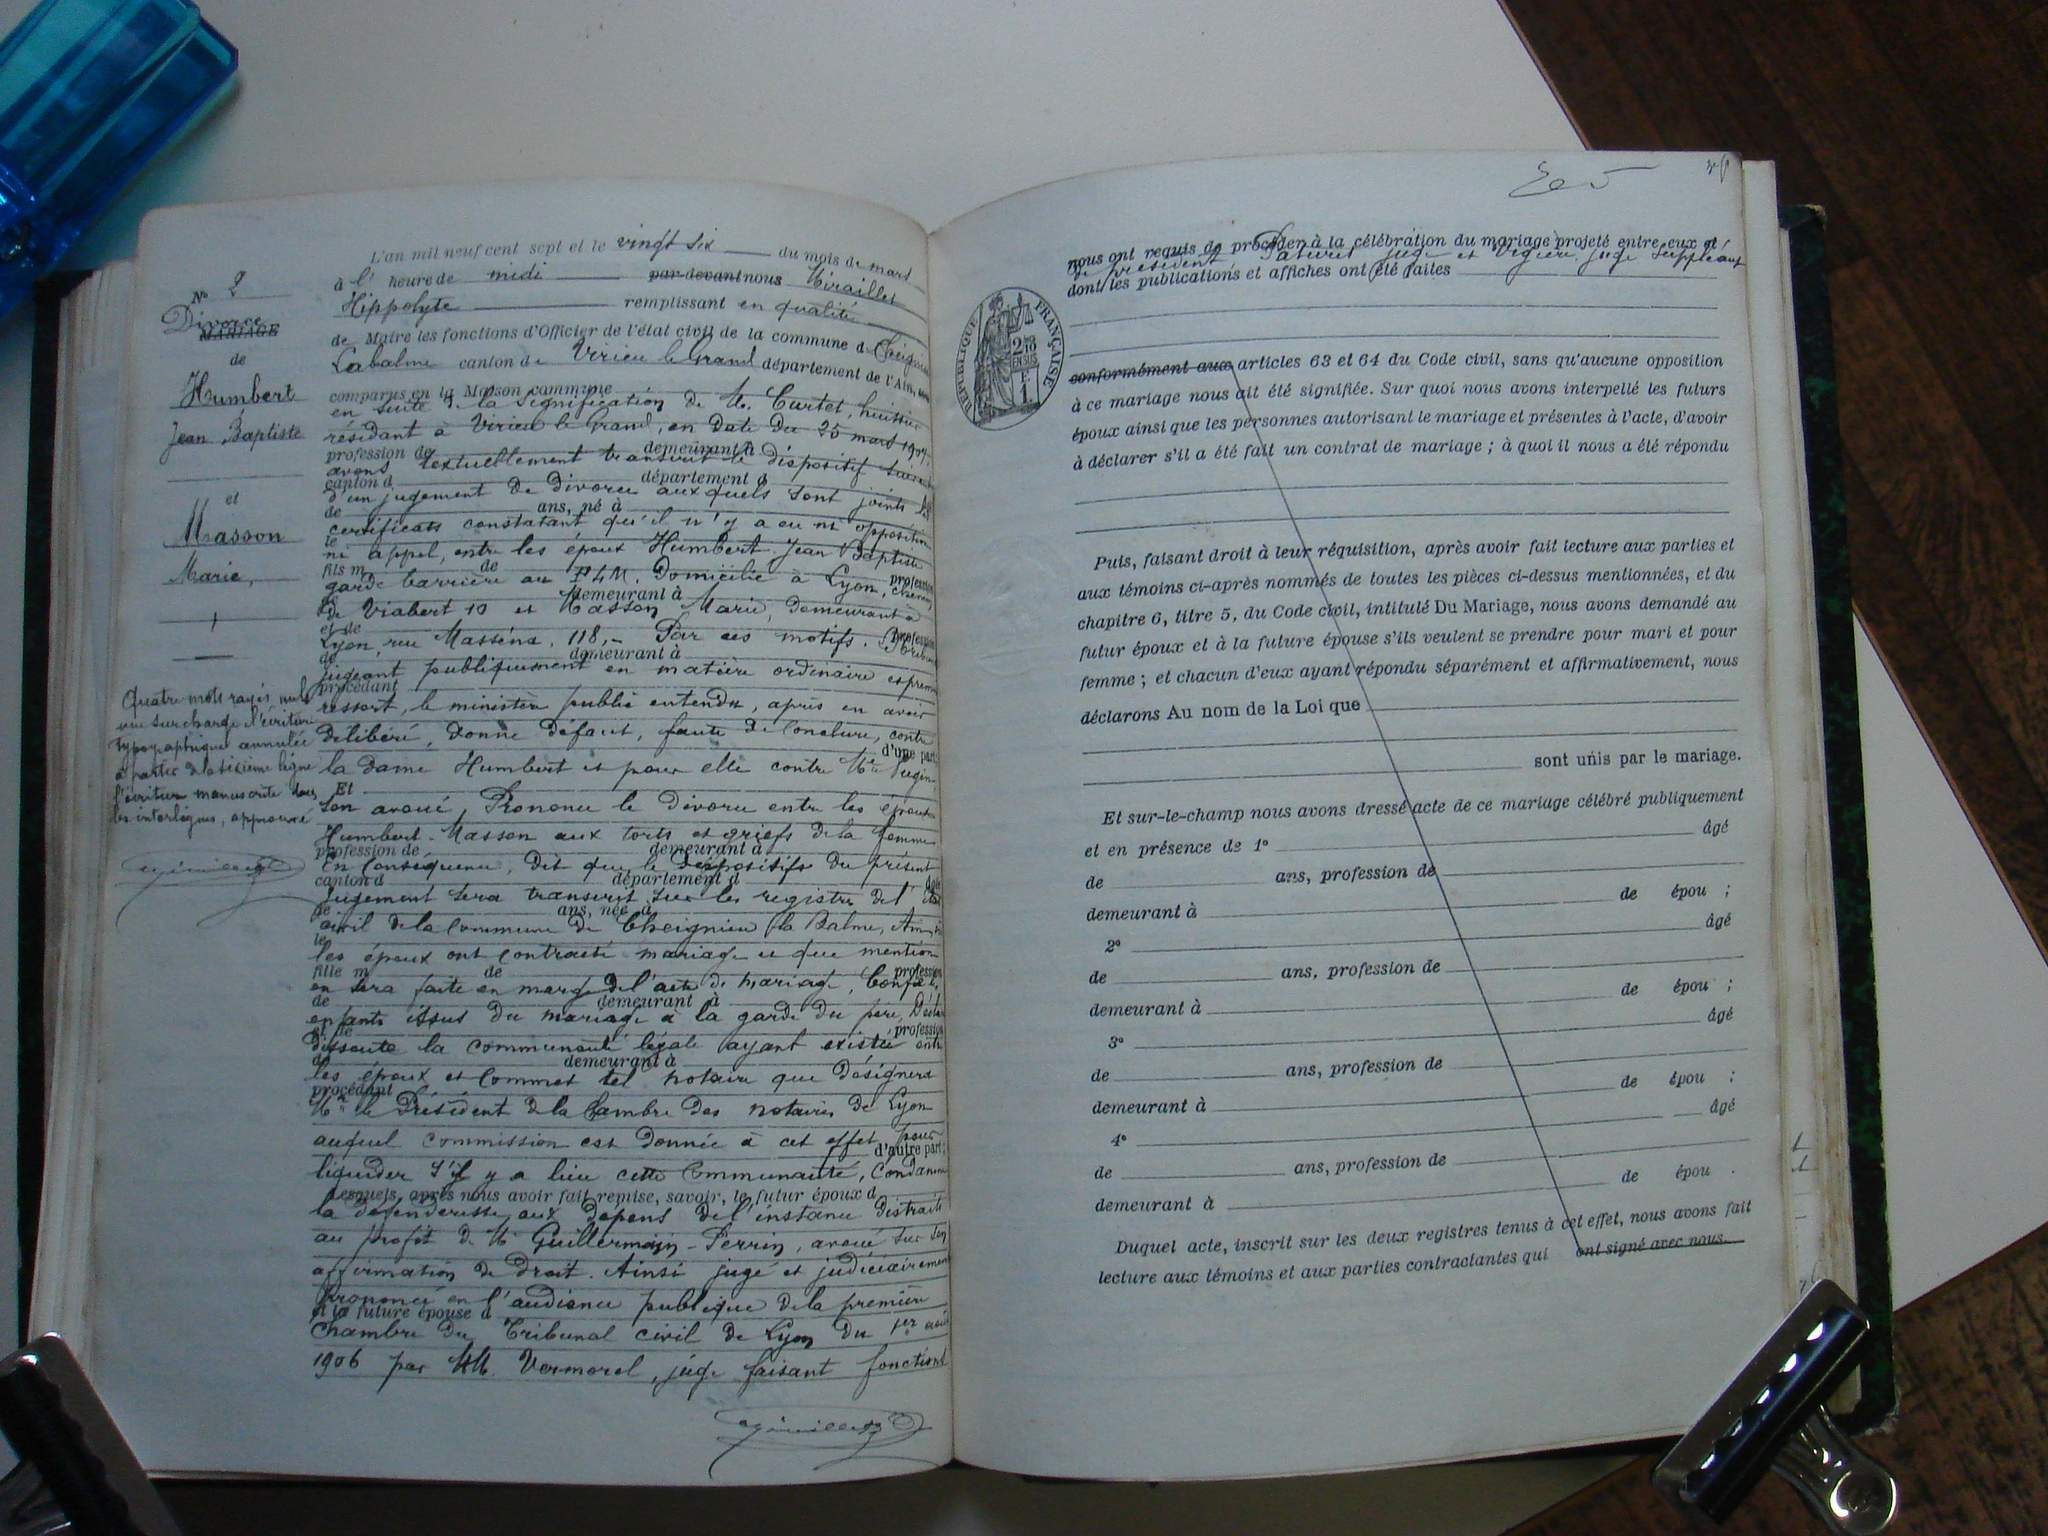 L'an mil neuf cent sept et le vingt six du mois de mars
à l' heure de midi par devant nous Miraillet
Hippolyte remplissant en qualité
de Maire les fonctions d'Officier de l'état civil de la commune de Cheignieu
Labalme canton de Virieu le Grand département de l'Ain,
comparus en la Maison commune
en suite de la signification de Me. Curtet, huissier
résidant à Virieu le Grand, en date du 25 mars 1907,
profession de demeurant à
avons textuellement transcrit le dispositif suivant
canton d département d
d'un jugement de divorce auxquels sont joints les
de ans, né à
certificats constatant qu'il n'y a eu ni opposition
le
ni appel, entre les époux Humbert Jean Baptiste
fils m de profession
garde barrière au P.L.M. domicilié à Lyon, chemin
de demeurant à
de Viabert 10 et Masson Marie, demeurant à
et de profession
Lyon, rue Masséna, 118,- Par ces motifs. Le Tribunal
de demeurant à
jugeant publiquement en matière ordinaire et premier
procédant
ressort, le ministère public entendu, après en avoir
délibéré, donne défaut, faute de conclure, contre
d'une part;
la dame Humbert et pour elle contre Me
Et
son avoué, Prononce le divorce entre les époux
Humbert-Masson aux torts et griefs de la femme
profession de demeurant à
En conséquence, dit que le dispositifs du présent
canton d département d âgé
jugement sera transcrit sur les registres de l'état
de ans, née à
civil de la commune de Cheignieu la Balme, Ain, où
le
les époux ont contracté mariage et que mention
fille m de profession
en sera faite en marge de l'acte de mariage, Confie les
de demeurant à
enfants issus du mariage à la garde du père, Déclare
et de profession
dissoute la communauté légale ayant existée entre
de demeurant à
les époux et commet tel notaire que désignera
procédant
Mr le Président de la Chambre des notaires de Lyon
auquel commission est donnée à cet effet pour
d'autre part;
liquider s'il y a lieu cette communauté, Condamne
Lesquels, après nous avoir fait remise, savoir, le futur époux d
la défenderesse aux dépens de l'instance distraits
au profit de Me Guillermain-Perrin, avoué sur son
affirmation de droit. Ainsi jugé et judiciairement
Prononcé en l'audience publique de la première
et la future épouse d
Chambre du Tribunal civil de Lyon du 1er août
1906 par MM. Vermorel, juge faisant fonctions
No 2
Divorce
MARIAGE
de
Humbert
Jean Baptiste
et
Masson
Marie,
Quatre mots rayés, nuls
une surcharge l'écriture
typographique annulée
à partir de la sixième ligne
l'écriture manuscrite dans
les interlignes, approuvé
nous ont requis de procéder à la célébration du mariage projeté entre eux et
de président juge et Vigière juge suppléant
dont les publications et affiches ont été faites
RÉPUBLIQUE FRANÇAISE
2/10
EN SUS
F.
1
conformément aux articles 63 et 64 du Code civil, sans qu'aucune opposition
à ce mariage nous ait été signifiée. Sur quoi nous avons interpellé les futurs
époux ainsi que les personnes autorisant le mariage et présentes à l'acte, d'avoir
à déclarer s'il a été fait un contrat de mariage ; à quoi il nous a été répondu
Puis, faisant droit à leur réquisition, après avoir fait lecture aux parties et
aux témoins ci-après nommés de toutes les pièces ci-dessus mentionnées, et du
chapitre 6, titre 5, du Code civil, intitulé Du Mariage, nous avons demandé au
futur époux et à la future épouse s'ils veulent se prendre pour mari et pour
femme ; et chacun d'eux ayant répondu séparément et affirmativement, nous
déclarons Au nom de la Loi que
sont unis par le mariage.
Et sur-le-champ nous avons dressé acte de ce mariage célébré publiquement
et en présence de 1° âgé
de ans, profession de
demeurant à de épou ;
2° âgé
de ans, profession de
demeurant à de épou ;
3° âgé
de ans, profession de
demeurant à de épou ;
4° âgé
de ans, profession de
demeurant à de épou .
Duquel acte, inscrit sur les deux registres tenus à cet effet, nous avons fait
lecture aux témoins et aux parties contractantes qui ont signé avec nous.